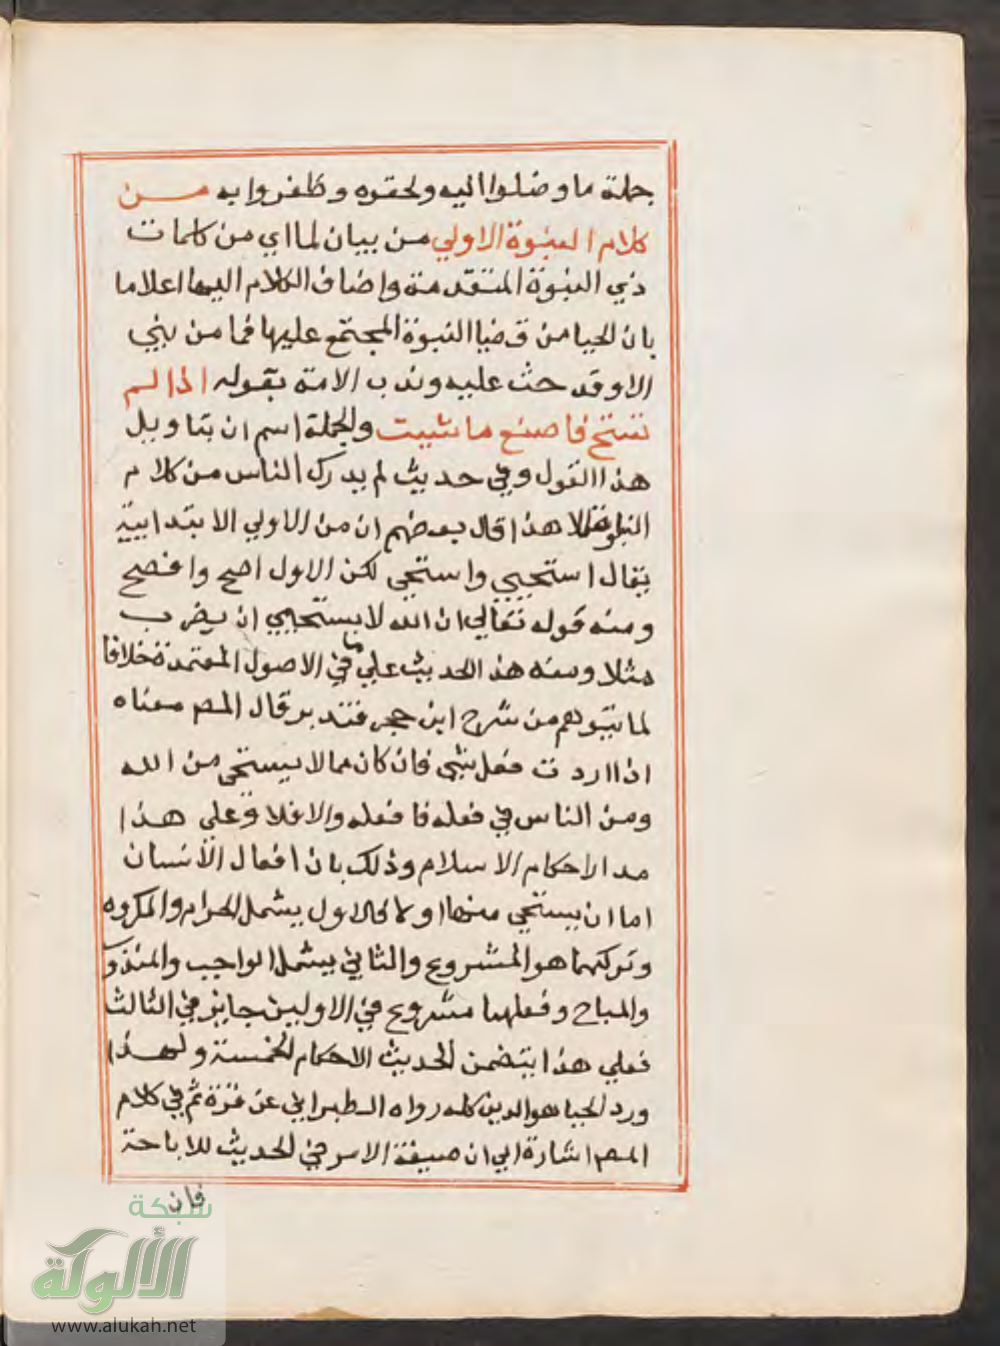 جملة ما وصلوا اليه ولحقوه وظفروا به مـن
كلام النبوة الاولي من بيان لما اي من كلمات
ذي النبوة المتقدمة واضاف الكلام اليها اعلاما
بان الحيا من قضيا النبوة المجتمع عليها فما من نبي
الا وقد حث عليه وندب الامة بقوله اذا لم
تستح فاصنع ما شيت والجملة اسم ان بتاويل
هذا القول وفي حديث لم يدرك الناس من كلام
النبوة الا هذا قال بعضهم ان من الاولي الابتدايية
يقال استحيي واستحي لكن الاول اصح وافصح
ومنه قوله تعالي ان الله لا يستحيي ان يضرب
مثلا وسنه هذا الحديث علي ما في الاصول المعتمدة خلافا
لما يتوهم من شرح ابن حجر فتدبر قال المص معناه
اذا اردت فعل شي فان كان مما لا يستحي من الله
ومن الناس في فعله فافعله والا فلا وعلي هذا
مدار احكام الاسلام وذلك بان افعال الانسان
اما ان يستحي منها او لا فالاول يشمل الحرام والمكروه
وتركهما هو المشروع والثاني يشمل الواجب والمندو
والمباح وفعلهما مشروع في الاولين جايز في الثالث
فعلي هذا يتضمن الحديث الاحكام الخمسة ولهذا
ورد الحيا هو الدين كله رواه الطبراني عن قرة ثم في كلام
المص اشارة الي ان صيغة الامر في الحديث للاباحة
فان
شبكة
الألوكة
www.alukah.net